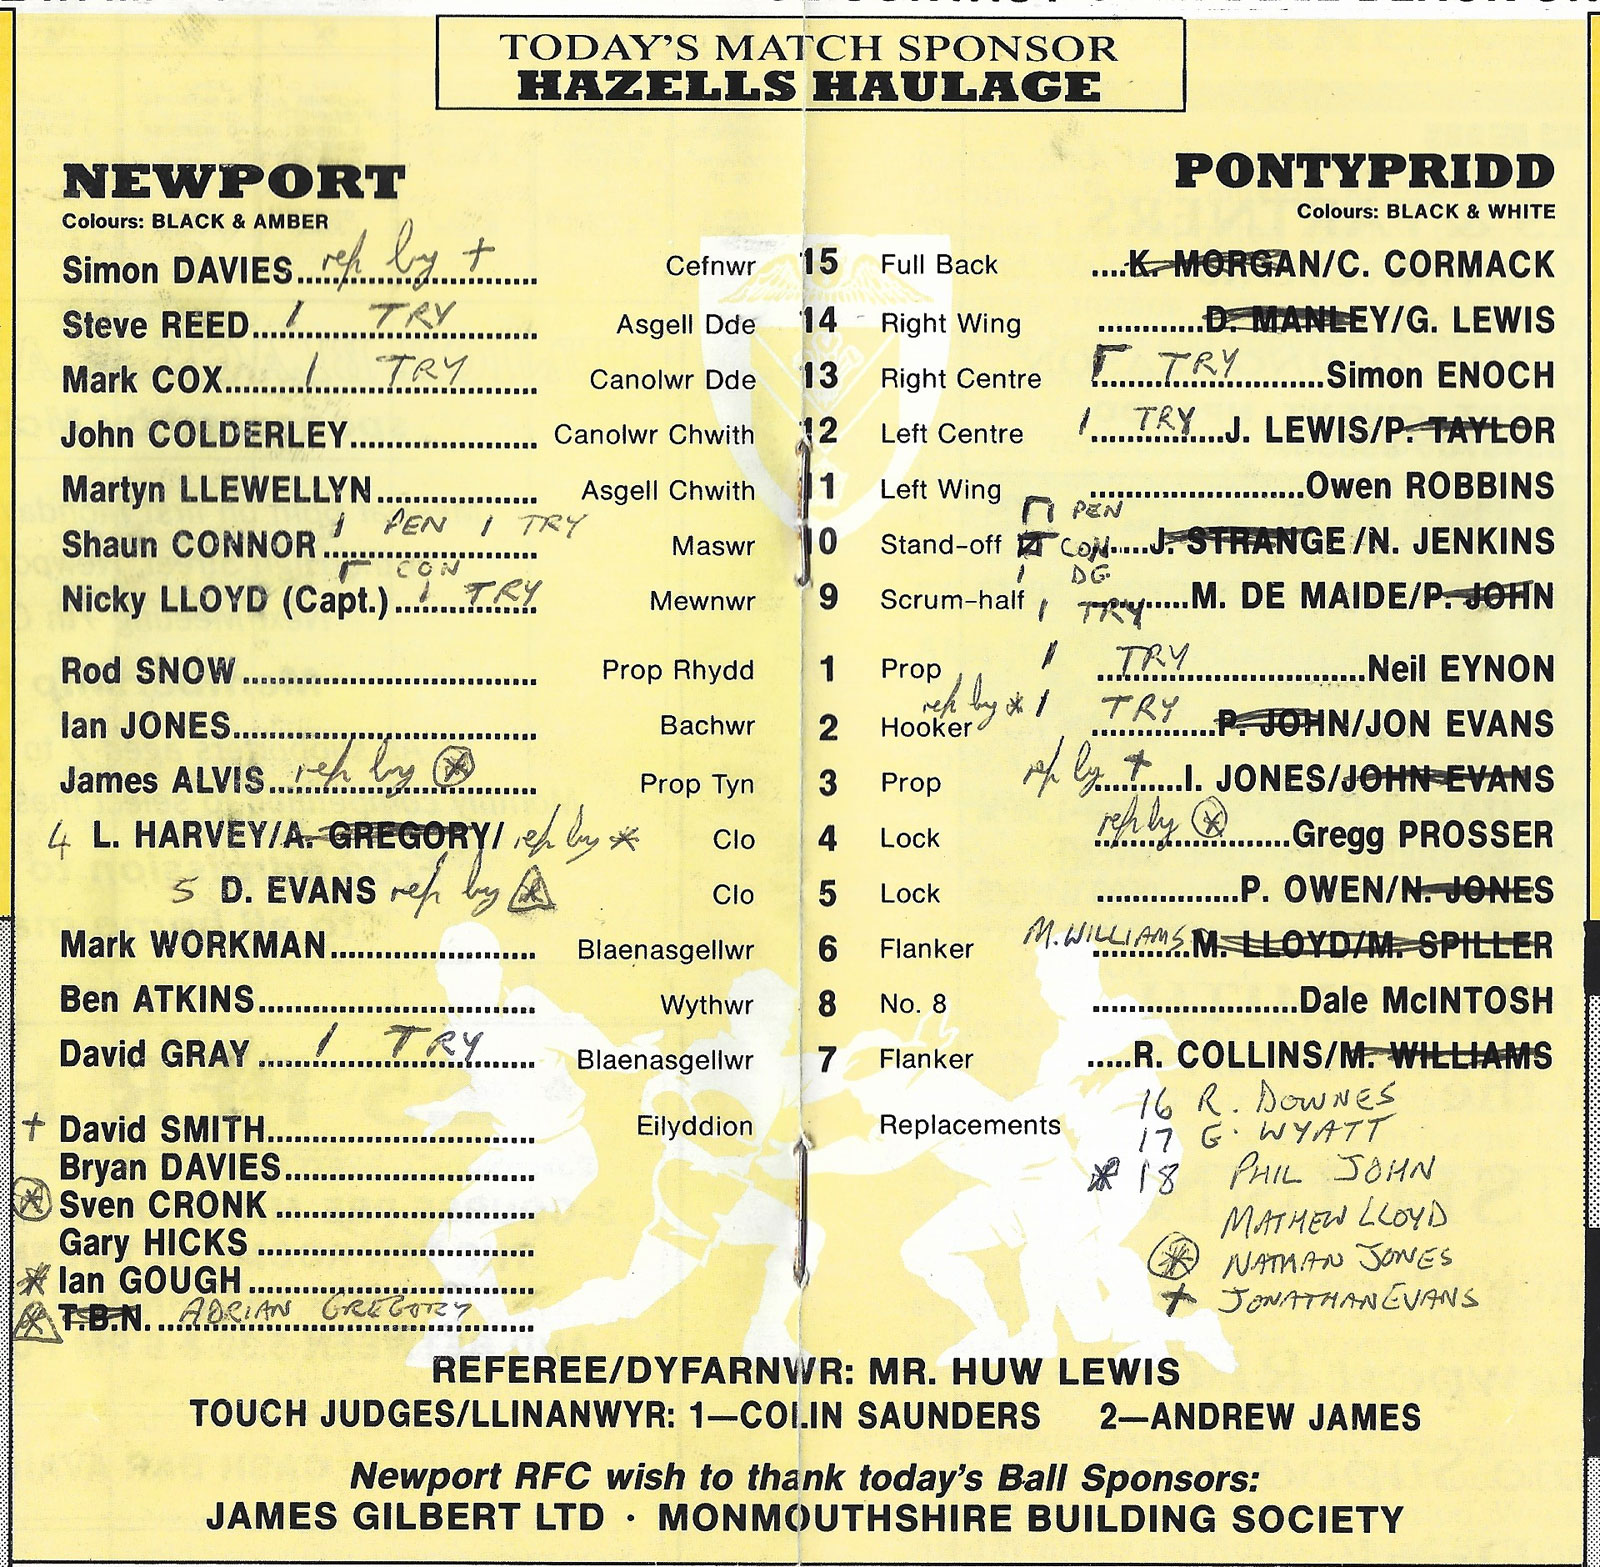 TODAY'S MATCH SPONSOR
HAZELLS HAULAGE
NEWPORT
Colours: BLACK & AMBER
PONTYPRIDD
Colours: BLACK & WHITE
Simon DAVIES rep by + Cefnwr 15 Full Back K. MORGAN/C. CORMACK
Steve REED 1 TRY Asgell Dde 14 Right Wing D. MANLEY/G. LEWIS
Mark COX 1 TRY Canolwr Dde 13 Right Centre TRY Simon ENOCH
John COLDERLEY Canolwr Chwith 12 Left Centre 1 TRY J. LEWIS/P. TAYLOR
Martyn LLEWELLYN Asgell Chwith 11 Left Wing Owen ROBBINS
1 PEN 1 TRY PEN
Shaun CONNOR Maswr 10 Stand-off CON J. STRANGE/N. JENKINS
CON 1 DG
Nicky LLOYD (Capt.) 1 TRY Mewnwr 9 Scrum-half 1 TRY M. DE MAIDE/P. JOHN
Rod SNOW Prop Rhydd 1 Prop 1 TRY Neil EYNON
Ian JONES Bachwr 2 Hooker rep by * 1 TRY P. JOHN/JON EVANS
James ALVIS rep by * Prop Tyn 3 Prop rep by + I. JONES/JOHN EVANS
4 L. HARVEY/A. GREGORY/ rep by * Clo 4 Lock rep by * Gregg PROSSER
5 D. EVANS rep by * Clo 5 Lock P. OWEN/N. JONES
Mark WORKMAN Blaenasgellwr 6 Flanker M. WILLIAMS M. LLOYD/M. SPILLER
Ben ATKINS Wythwr 8 No. 8 Dale McINTOSH
David GRAY 1 TRY Blaenasgellwr 7 Flanker R. COLLINS/M. WILLIAMS
Eilyddion Replacements
+ David SMITH
Bryan DAVIES
* Sven CRONK
Gary HICKS
* Ian GOUGH
* T.B.N. ADRIAN GREGORY
16 R. DOWNES
17 G. WYATT
* 18 PHIL JOHN
MATHEW LLOYD
* NATHAN JONES
+ JONATHAN EVANS
REFEREE/DYFARNWR: MR. HUW LEWIS
TOUCH JUDGES/LLINANWYR: 1—COLIN SAUNDERS 2—ANDREW JAMES
Newport RFC wish to thank today's Ball Sponsors:
JAMES GILBERT LTD · MONMOUTHSHIRE BUILDING SOCIETY